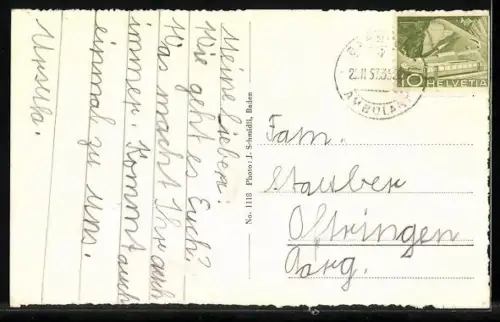 Meine Lieben!
Wie geht es Euch?
Was macht Ihr auch
immer. Kommt auch
einmal zu uns.
Ursula.
No. 1118 Photo: J. Schmidli, Baden
10 HELVETIA
AMBULANT
Fam.
Stauber
Oftringen
Aarg.